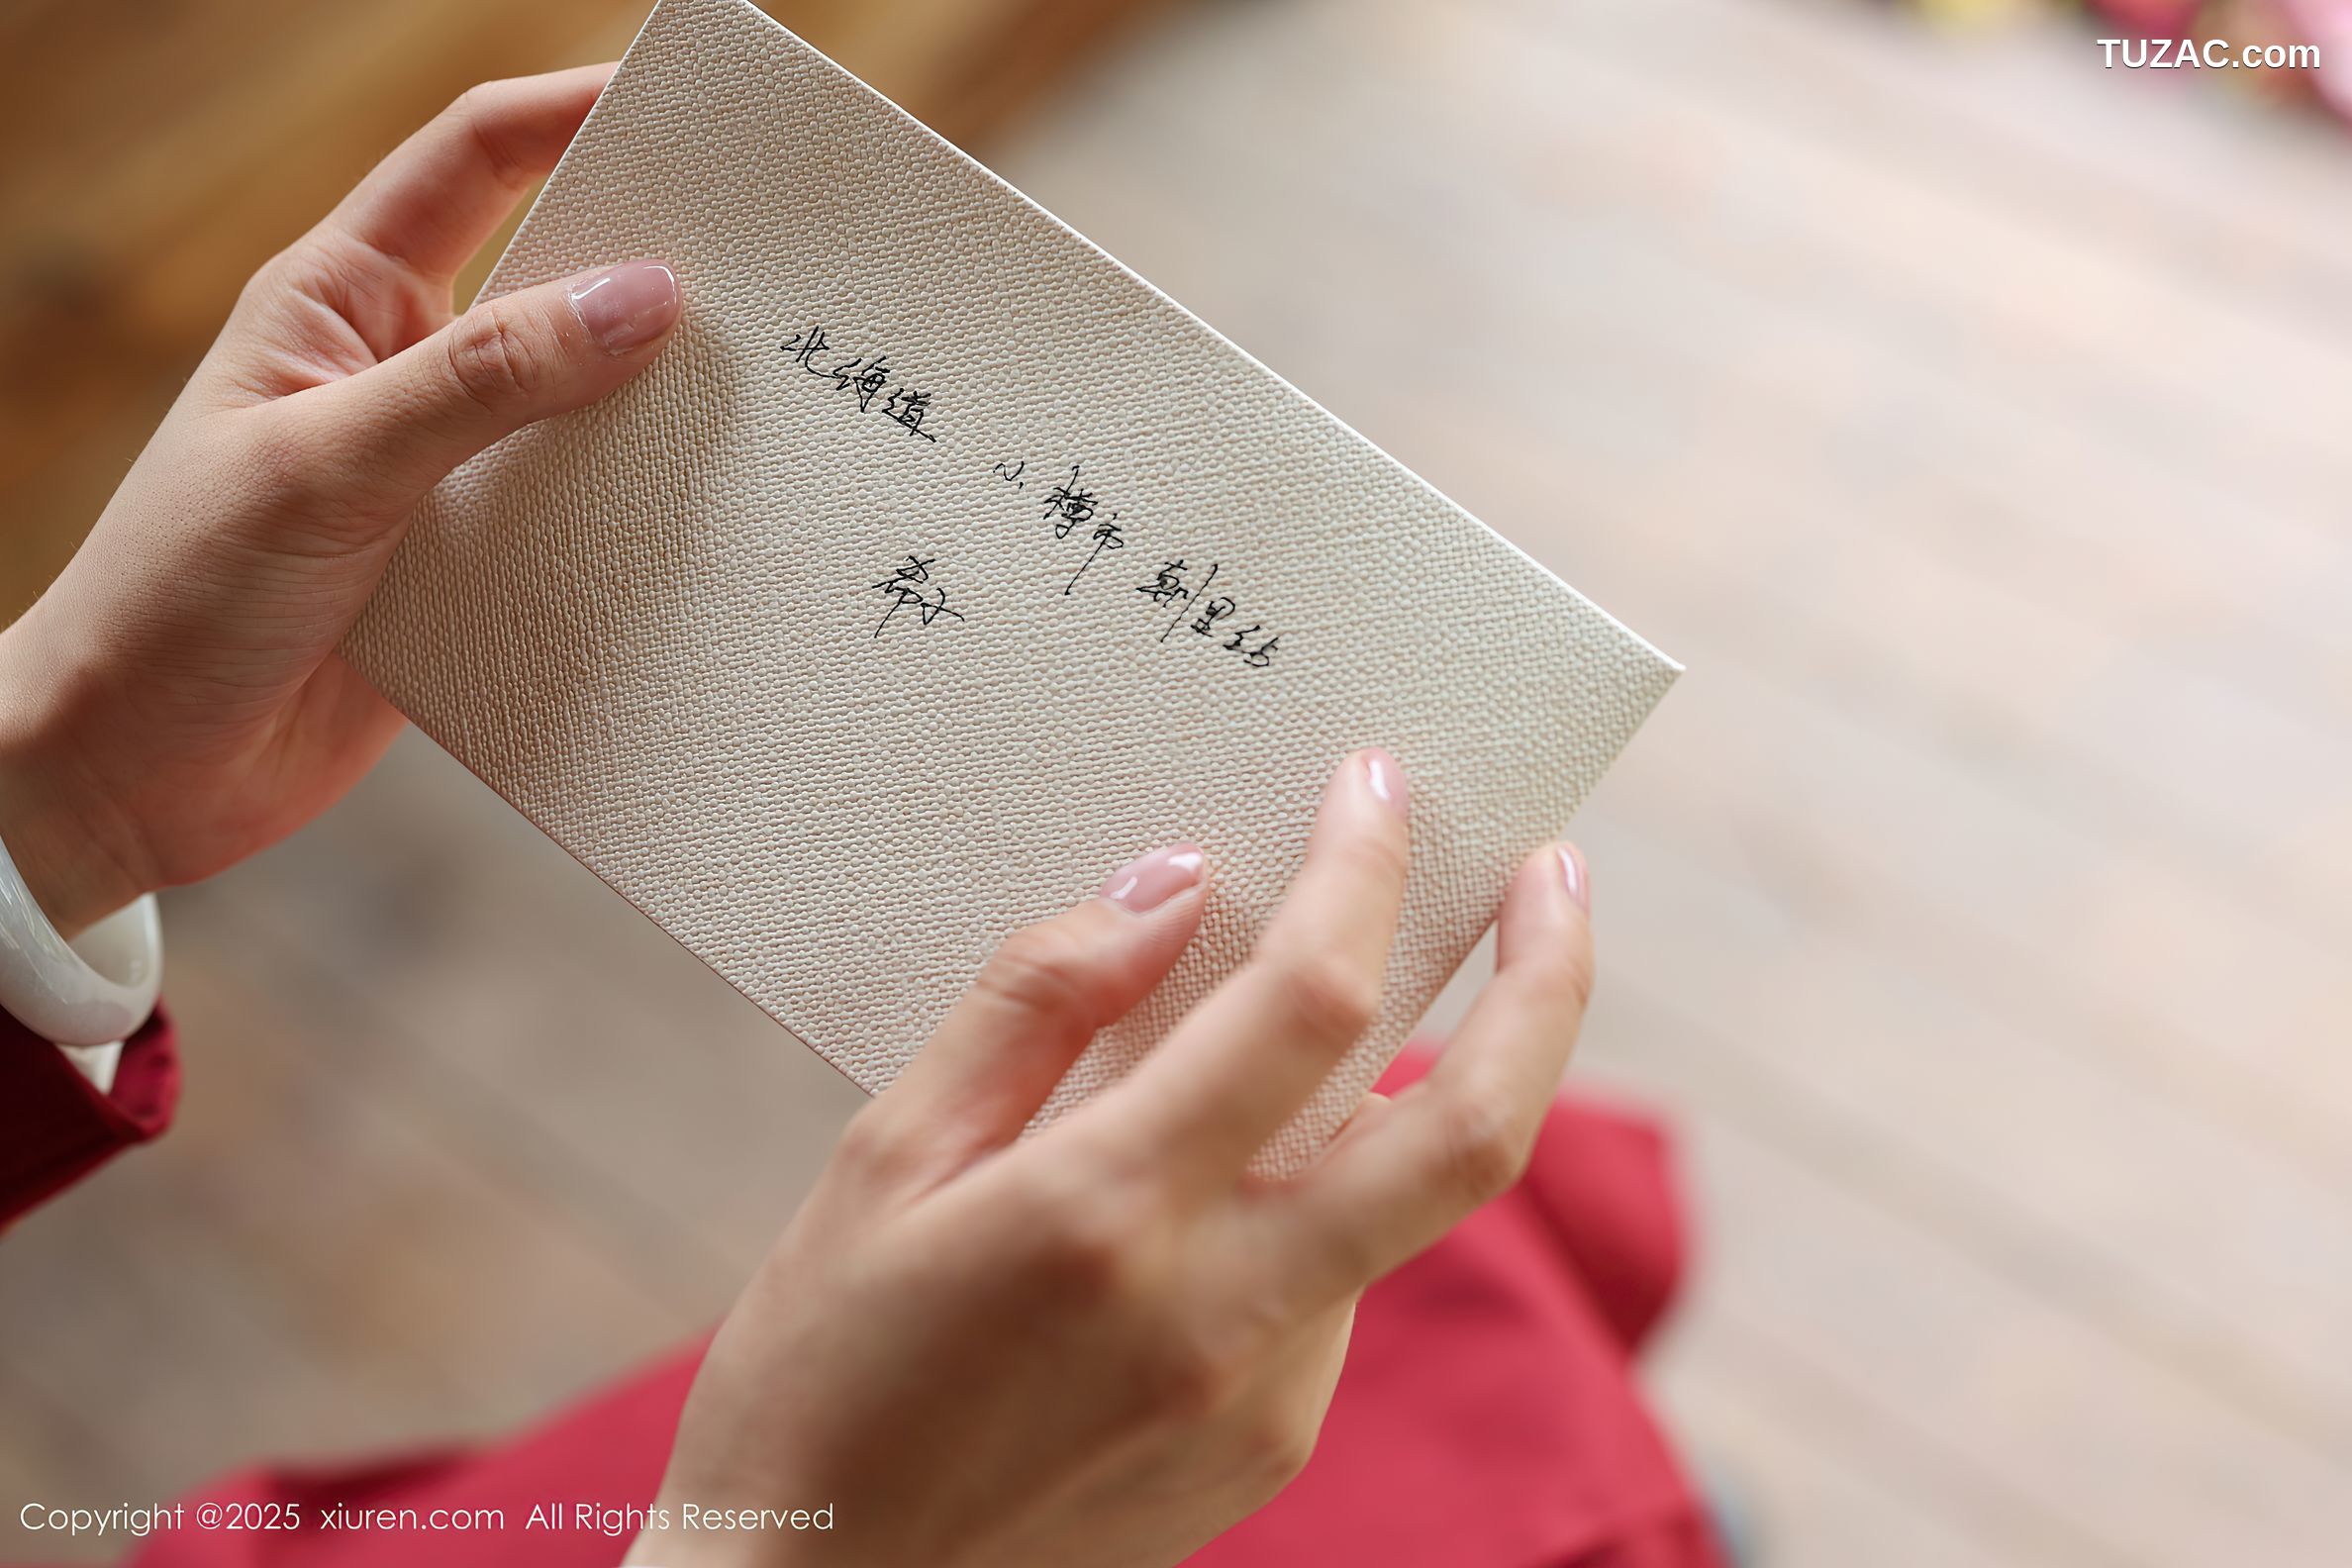 TUZAC.com
北海道 小樽市 朝里站
希子
Copyright @2025 xiuren.com All Rights Reserved